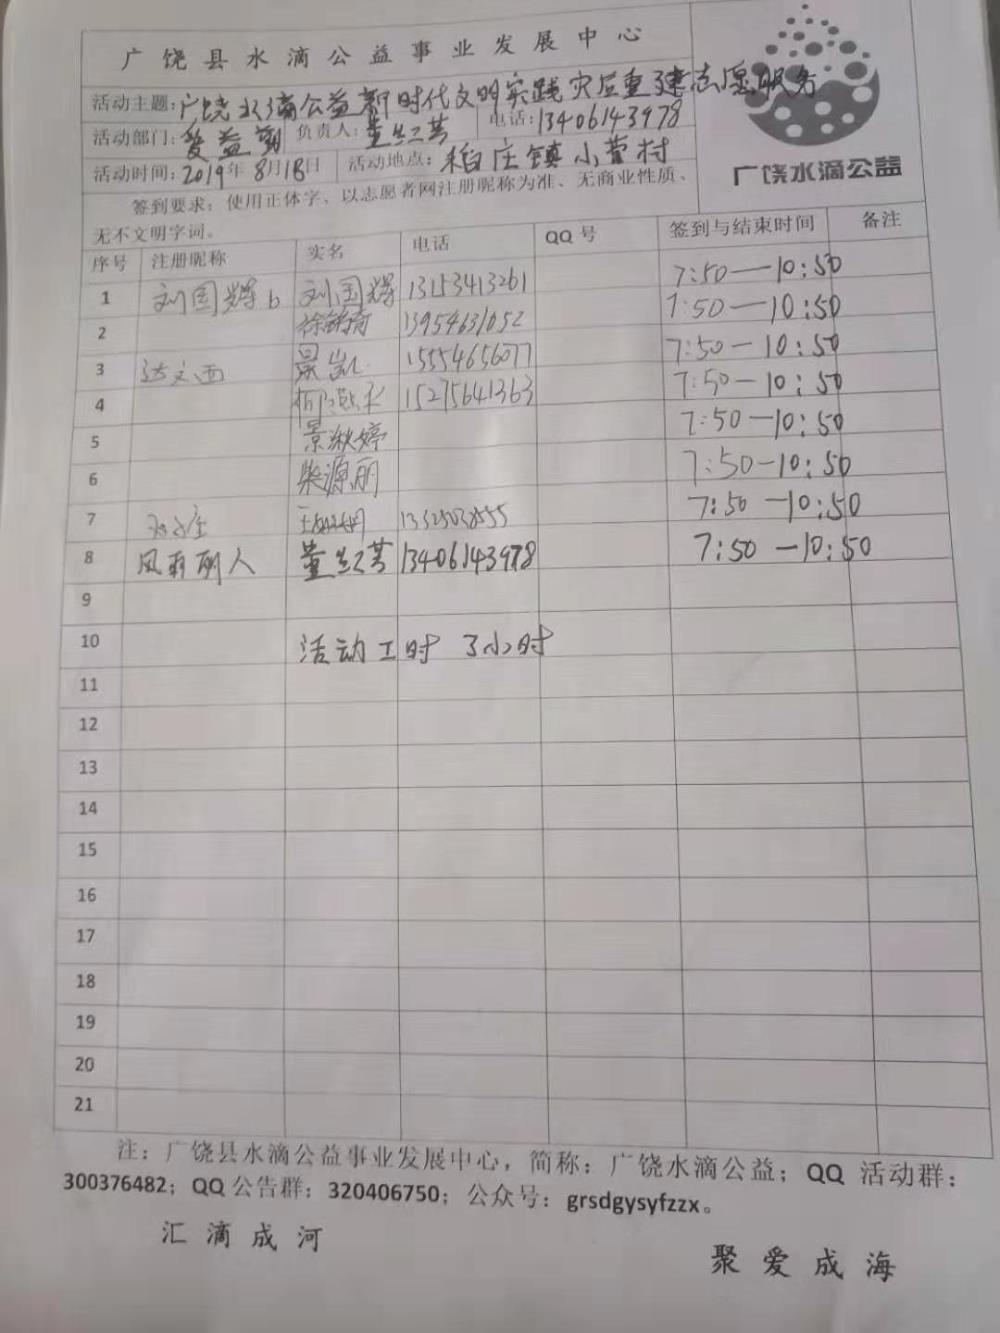 广饶县水滴公益事业发展中心
活动主题:广饶水滴公益新时代文明实践灾后重建志愿服务
活动部门:爱益 负责人:董 电话:13406143978
活动时间:2019年8月18日 活动地点:稻庄镇小营村
签到要求:使用正体字、以志愿者网注册昵称为准、无商业性质、
无不文明字词。
广饶水滴公益
序号 注册昵称 实名 电话 QQ号 签到与结束时间 备注
1 刘国辉b 刘国辉 13153413261 7:50—10:50
2 13954631052 7:50—10:50
3 达文西 景凯 15554656077 7:50—10:50
4 15275641363 7:50—10:50
5 景淑婷 7:50—10:50
6 柴源丽 7:50—10:50
7 7:50—10:50
8 风雨丽人 董 13406143978 7:50—10:50
9
10 活动工时 3小时
11
12
13
14
15
16
17
18
19
20
21
注:广饶县水滴公益事业发展中心,简称:广饶水滴公益;QQ 活动群:
300376482;QQ公告群:320406750;公众号:grsdgysyfzzx。
汇滴成河
聚爱成海